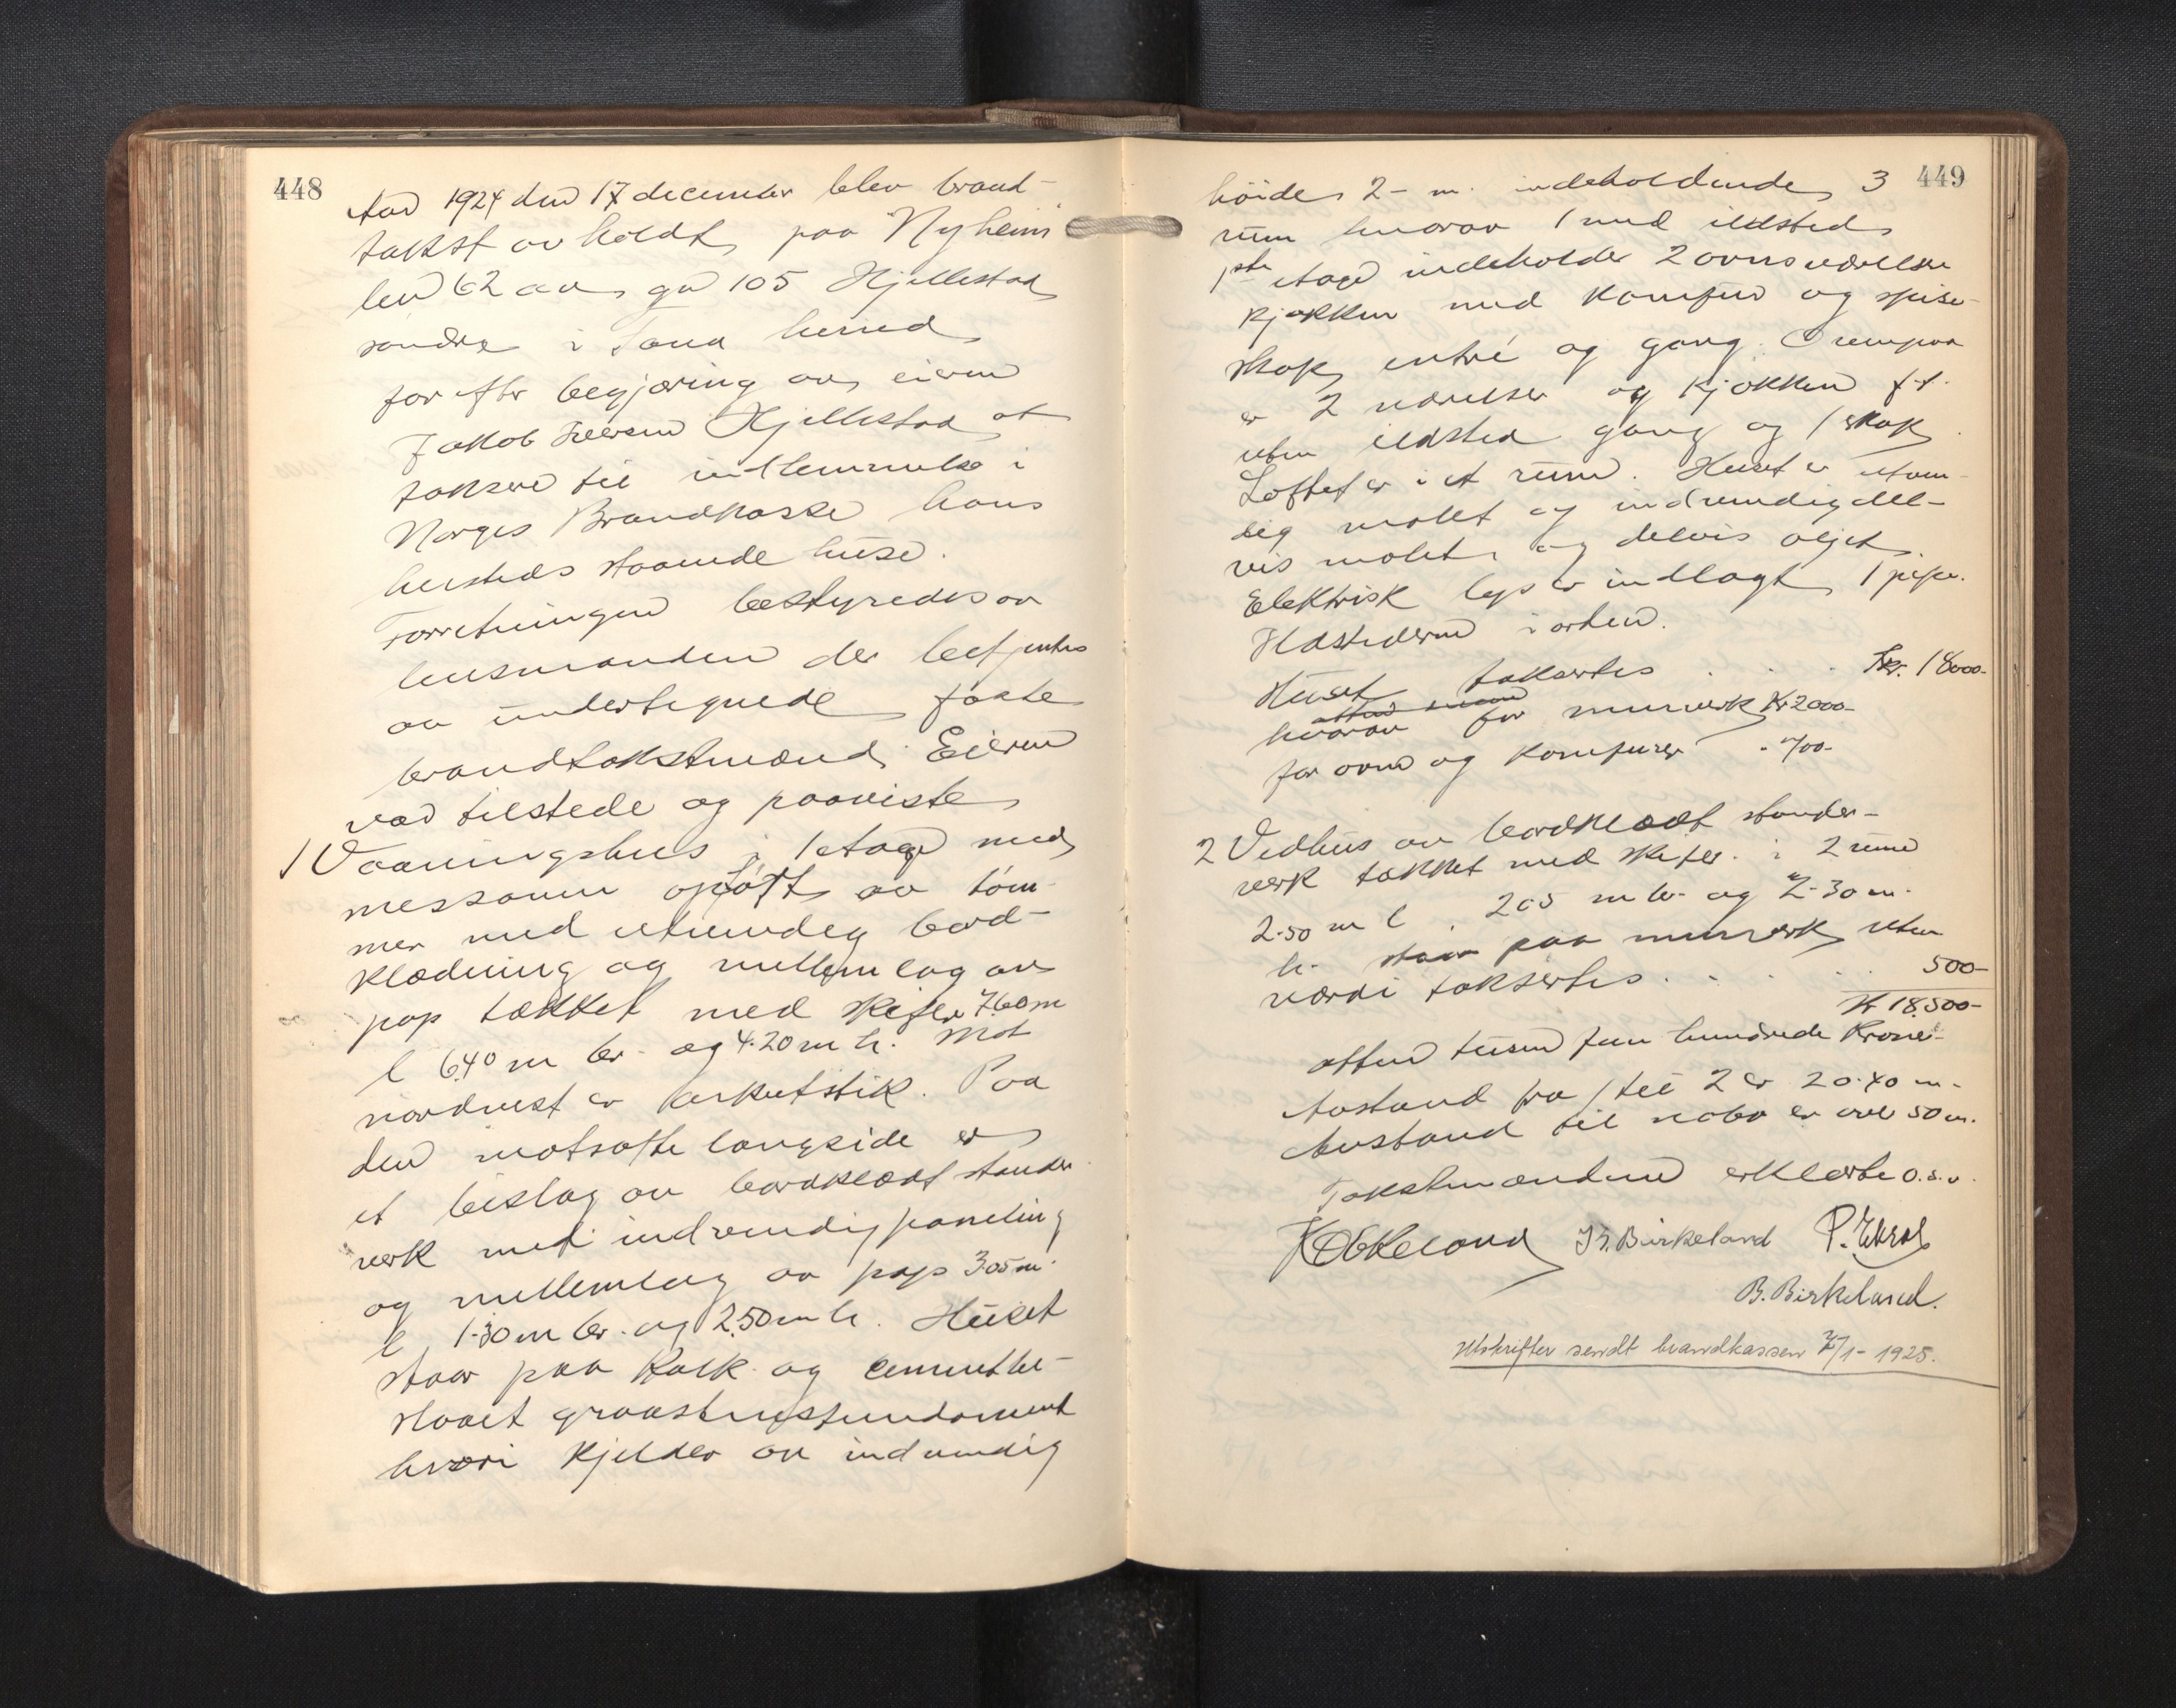 448
Aar 1924 den 17 december blev brand-
takst avholdt paa Nyheim
bn 62 av gn 105 Hjellestad
søndre i Fana herred
for efter begjæring av eieren
Jakob Iversen Hjellestad at
taksere til indlemmelse i
Norges Brandkasse hans
hersteds staaende huse.
Forretningen bestyredes av
lensmanden der betjentes
av undertegnede faste
brandtakstmænd. Eieren
var tilstede og paaviste
1 Vaaningshus i 1 etage med
messanin og loft av tøm-
mer med utvendig bord-
klædning og mellemlag av
pap tækket med skifer 7.60 m
l 6.40 m br. og 4.20 m h. Mot
nordvest er karkutstik. Paa
den motsatte langside er
et bislag av bordklædt stender
verk med indvendig paneling
og mellemlag av pap 3.05 m.
l 1.30 m br. og 2.50 m h. Huset
staar paa kalk og cementbe-
slaaet graastensfundament
hvori kjelder av indvendig
449
høide 2- m. indeholdende 3
rum hvorav 1 med ildsted
1ste etage indeholder 2 ovnsværelser
kjøkken med komfur og spise-
skap, entré og gang. Ovenpaa
er 2 værelser og kjøkken f.t.
uten ildsted gang og 1 skap.
Loftet er i et rum. Huset er utven-
dig malet og indvendig del-
vis malet og delvis oljet.
Elektrisk lys er indlagt 1 pipe.
Ildstederne i orden.
Huset taksertes . . . Kr. 18000-
hvorav for murverk Kr 2000-
for ovne og komfurer - 700-
2 Vedhus av bordklædt stender-
verk tækket med skifer i 2 rum
2.50 m l 205 m br. og 2.30 m.
h. staar paa murverk uten
værdi taksertes . . . . 500-
Kr 18.500-
atten tusen fem hundrede Kroner-
Avstand fra 1 til 2 er 20.40 m-
Avstand til nabo er over 50 m.
Takstmændene erklærte o.s.v.
Kr. Birkeland
B. Birkeland.
Utskrifter sendt brandkassen 7/1- 1925.